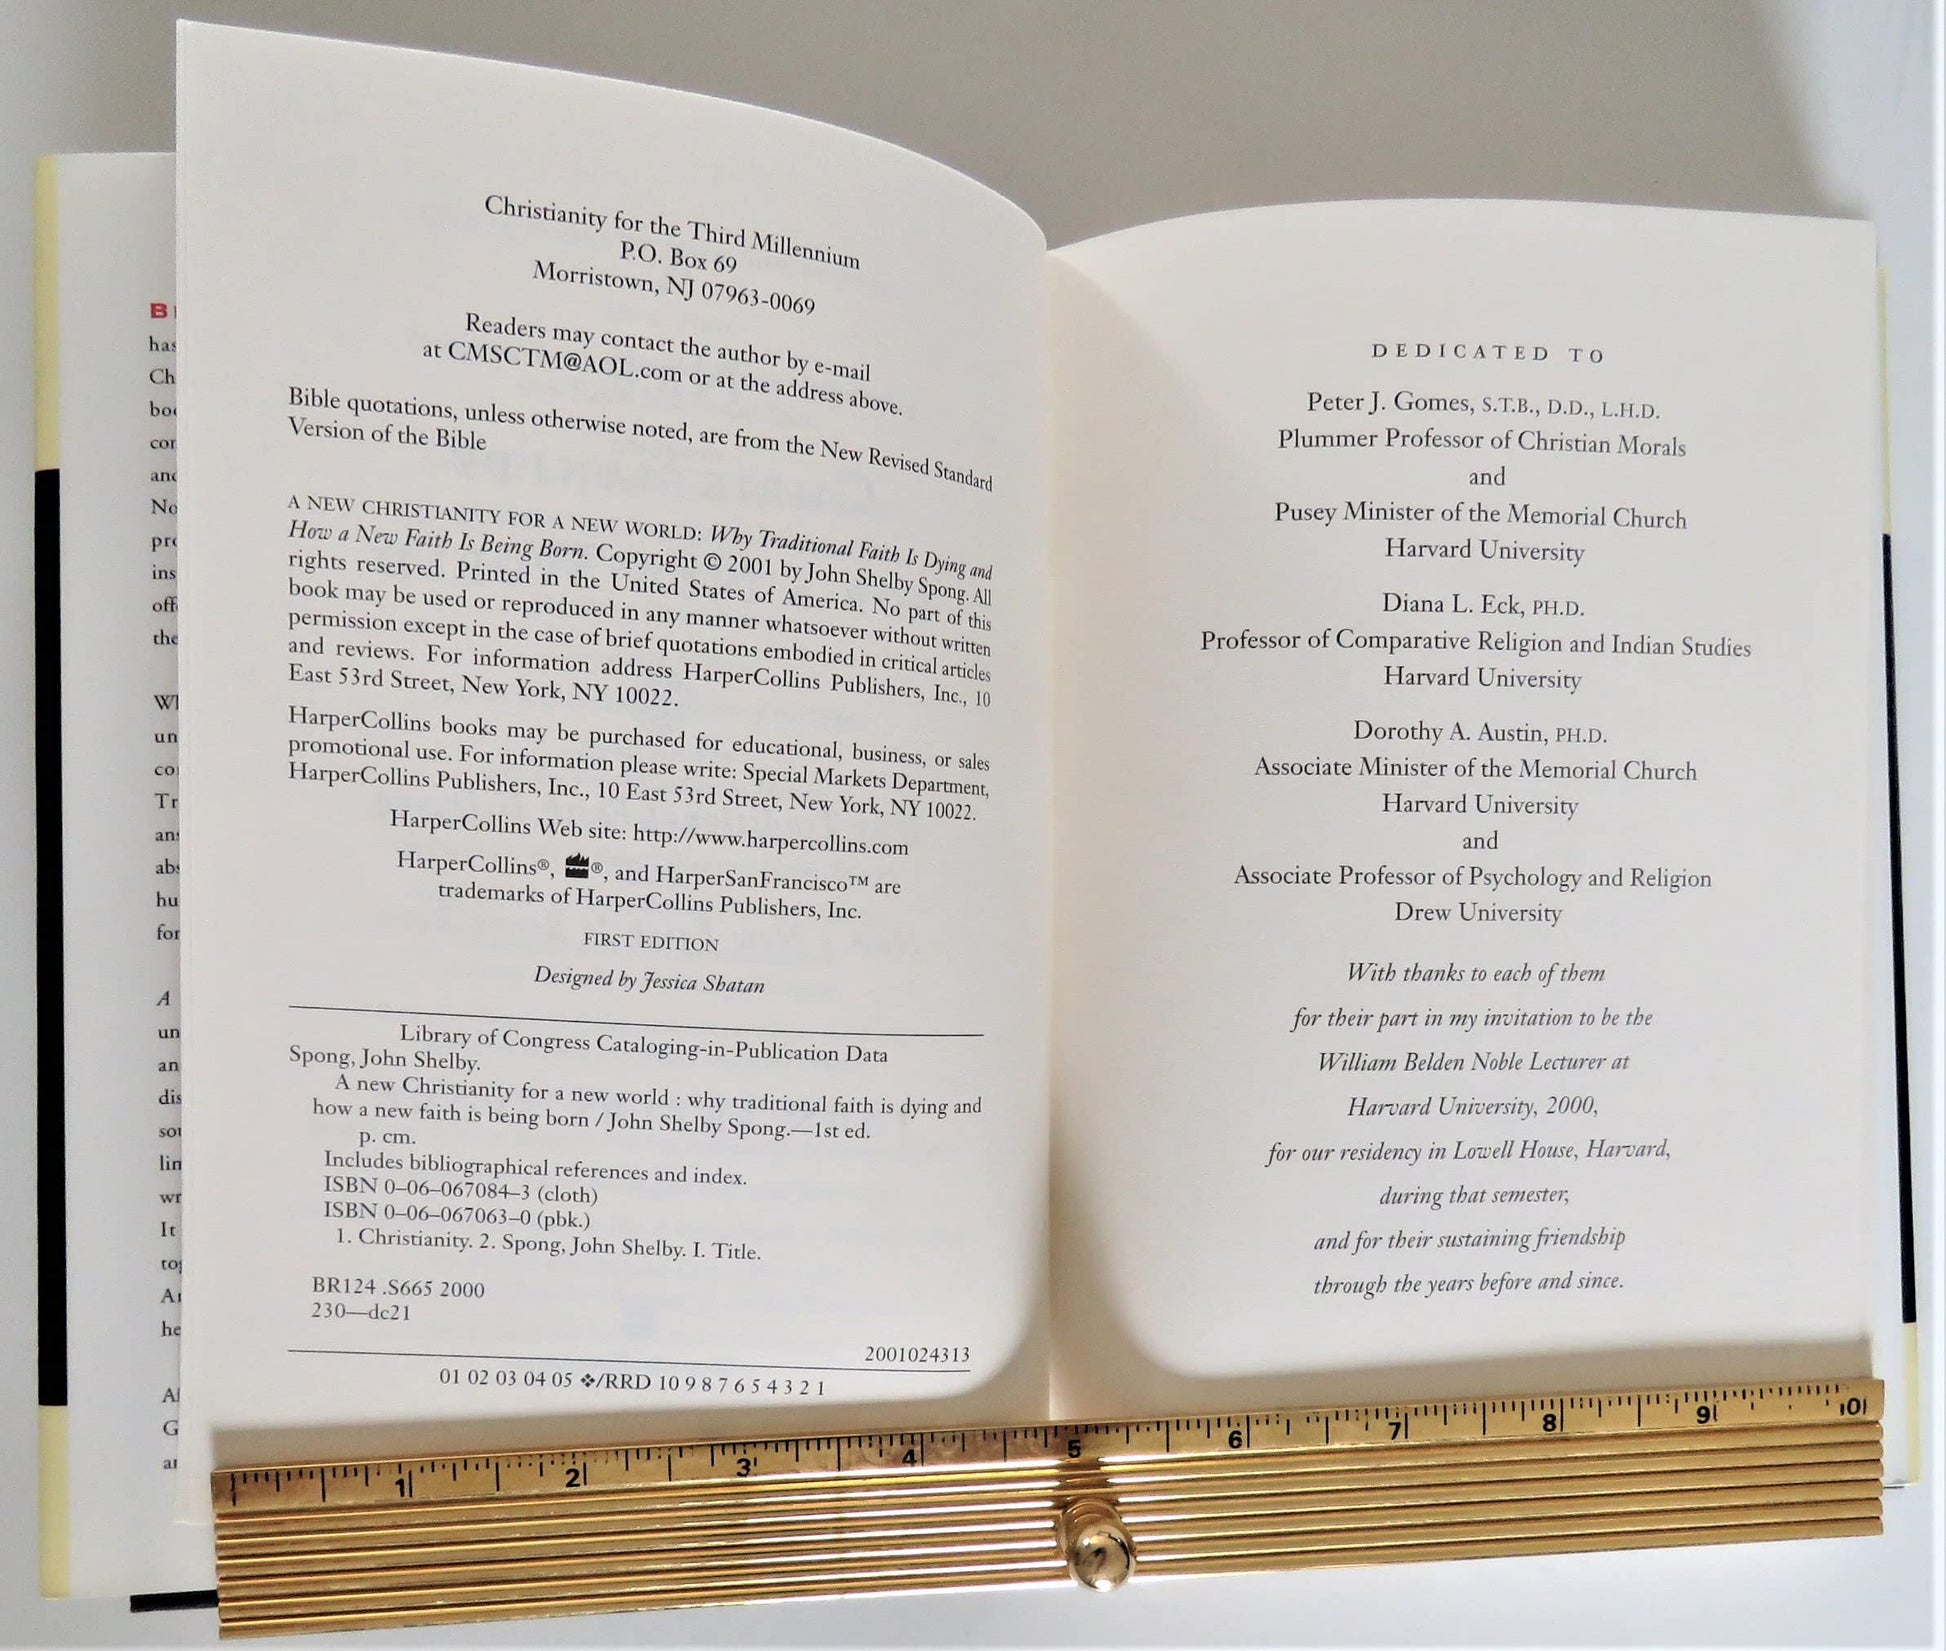 Christianity for the Third Millennium
P.O. Box 69
Morristown, NJ 07963-0069
Readers may contact the author by e-mail
at CMSCTM@AOL.com or at the address above.
Bible quotations, unless otherwise noted, are from the New Revised Standard
Version of the Bible
A NEW CHRISTIANITY FOR A NEW WORLD: Why Traditional Faith Is Dying and
How a New Faith Is Being Born. Copyright © 2001 by John Shelby Spong. All
rights reserved. Printed in the United States of America. No part of this
book may be used or reproduced in any manner whatsoever without written
permission except in the case of brief quotations embodied in critical articles
and reviews. For information address HarperCollins Publishers, Inc., 10
East 53rd Street, New York, NY 10022.
HarperCollins books may be purchased for educational, business, or sales
promotional use. For information please write: Special Markets Department,
HarperCollins Publishers, Inc., 10 East 53rd Street, New York, NY 10022.
HarperCollins Web site: http://www.harpercollins.com
HarperCollins®, ®, and HarperSanFrancisco™ are
trademarks of HarperCollins Publishers, Inc.
FIRST EDITION
Designed by Jessica Shatan
Library of Congress Cataloging-in-Publication Data
Spong, John Shelby.
A new Christianity for a new world : why traditional faith is dying and
how a new faith is being born / John Shelby Spong.—1st ed.
p. cm.
Includes bibliographical references and index.
ISBN 0–06–067084–3 (cloth)
ISBN 0–06–067063–0 (pbk.)
1. Christianity. 2. Spong, John Shelby. I. Title.
BR124 .S665 2000
230—dc21
2001024313
01 02 03 04 05 ❖/RRD 10 9 8 7 6 5 4 3 2 1
DEDICATED TO
Peter J. Gomes, S.T.B., D.D., L.H.D.
Plummer Professor of Christian Morals
and
Pusey Minister of the Memorial Church
Harvard University
Diana L. Eck, PH.D.
Professor of Comparative Religion and Indian Studies
Harvard University
Dorothy A. Austin, PH.D.
Associate Minister of the Memorial Church
Harvard University
and
Associate Professor of Psychology and Religion
Drew University
With thanks to each of them
for their part in my invitation to be the
William Belden Noble Lecturer at
Harvard University, 2000,
for our residency in Lowell House, Harvard,
during that semester,
and for their sustaining friendship
through the years before and since.
1 2 3 4 5 6 7 8 9 10